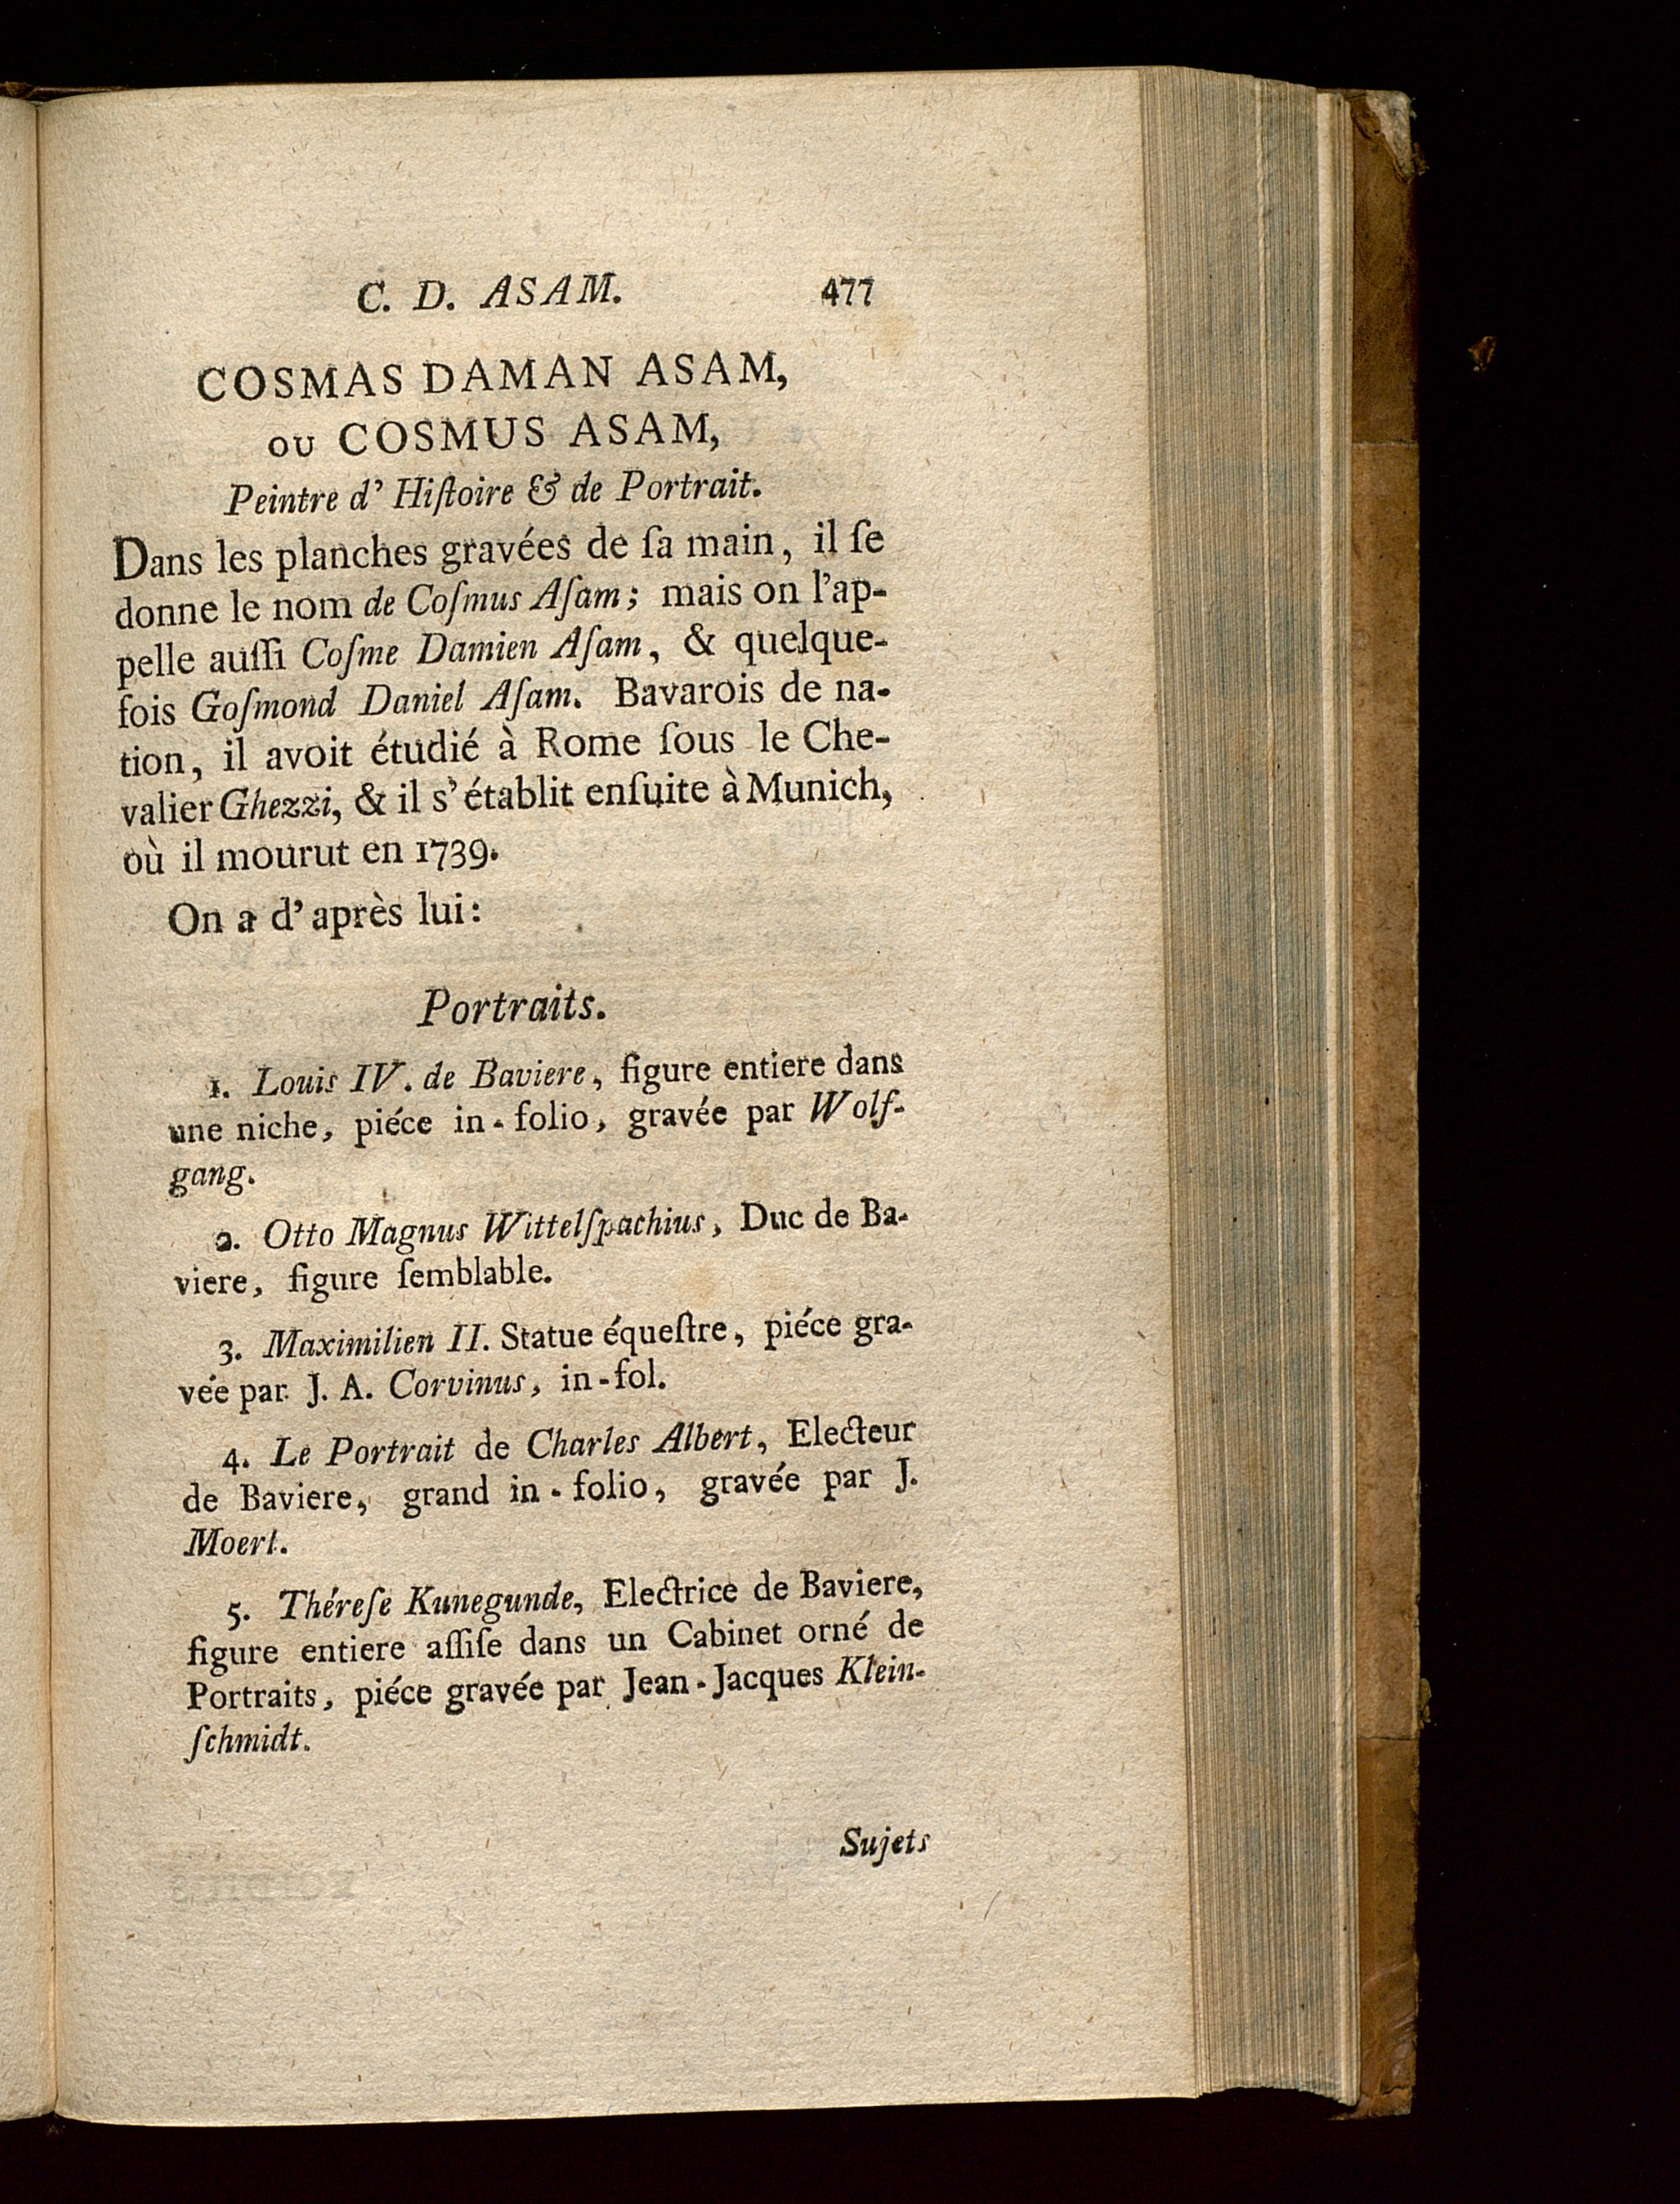 C. D. ASAM. 477
COSMAS DAMAN ASAM,
ou COSMUS ASAM,
Peintre d' Hiſtoire & de Portrait.
Dans les planches gravées de ſa main, il ſe
donne le nom de Coſmus Aſam; mais on l'ap-
pelle auſſi Coſme Damien Aſam, & quelque-
fois Goſmond Daniel Aſam. Bavarois de na-
tion, il avoit étudié à Rome ſous le Che-
valier Ghezzi, & il s'établit enſuite à Munich,
où il mourut en 1739.
On a d'après lui:
Portraits.
1. Louis IV. de Baviere, figure entiere dans
une niche, piéce in-folio, gravée par Wolf-
gang.
2. Otto Magnus Wittelſpachius, Duc de Ba-
viere, figure ſemblable.
3. Maximilien II. Statue équeſtre, piéce gra-
vée par J. A. Corvinus, in-fol.
4. Le Portrait de Charles Albert, Electeur
de Baviere, grand in-folio, gravée par J.
Moerl.
5. Théreſe Kunegunde, Electrice de Baviere,
figure entiere aſſiſe dans un Cabinet orné de
Portraits, piéce gravée par Jean-Jacques Klein-
ſchmidt.
Sujets